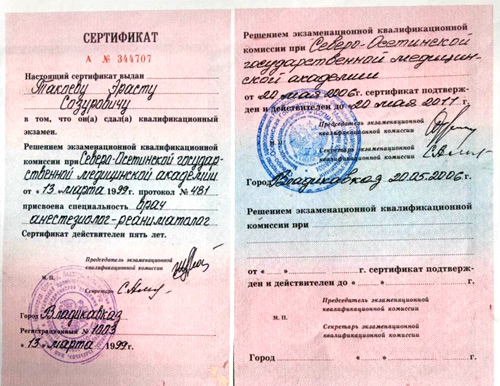 СЕРТИФИКАТ
А № 344707
Настоящий сертификат выдан
Такоеву Эрасту
Созуровичу
в том, что он(а) сдал(а) квалификационный
экзамен.
Решением экзаменационной квалификационной
комиссии при Северо-Осетинской государ-
ственной медицинской академии
от «13» марта 1999 г. протокол № 481
присвоена специальность врач
анестезиолог-реаниматолог
Сертификат действителен пять лет.
Председатель экзаменационной
квалификационной комиссии
М. П.
Секретарь
Город Владикавказ
Регистрационный № 1003
«13» марта 1999 г.
Решением экзаменационной квалификационной
комиссии при Северо-Осетинской
государственной медицин-
ской академии
от 20 мая 2006 г. сертификат подтверж-
ден и действителен до 20 мая 2011 г.
Председатель экзаменационной
квалификационной комиссии
М. П.
Секретарь экзаменационной
квалификационной комиссии
Город Владикавказ 20.05.2006 г.
Решением экзаменационной квалификационной
комиссии при
от « » г. сертификат подтверж-
ден и действителен до « » г.
Председатель экзаменационной
квалификационной комиссии
М. П.
Секретарь экзаменационной
квалификационной комиссии
Город « » г.